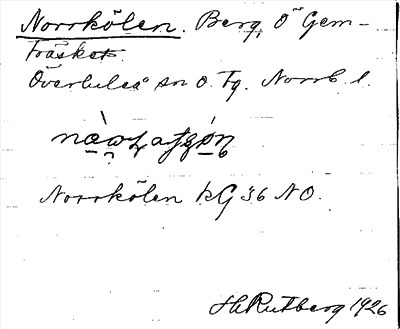 Norrkölen. Berg, Ö Gem-
träsket.
Överluleå sn o. Tg. Norrb. l.
Norrkölen kG 36 NO.
H Rutberg 1926